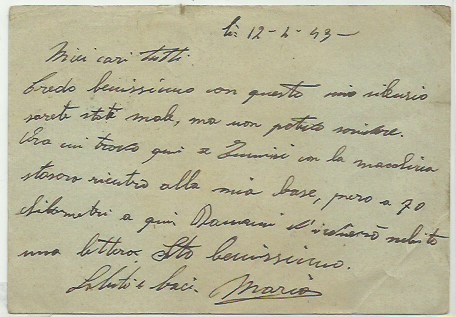 li 12-4-43-
Miei cari tutti
Credo benissimo con questo mio silenzio
sarete state male, ma non potevo scrivere.
Ora mi trovo qui a con la macchina
stasera rientro alla mia base, però a 70
chilometri a qui Domani v'invierò subito
una lettera. Sto benissimo.
Saluti e baci. Mario